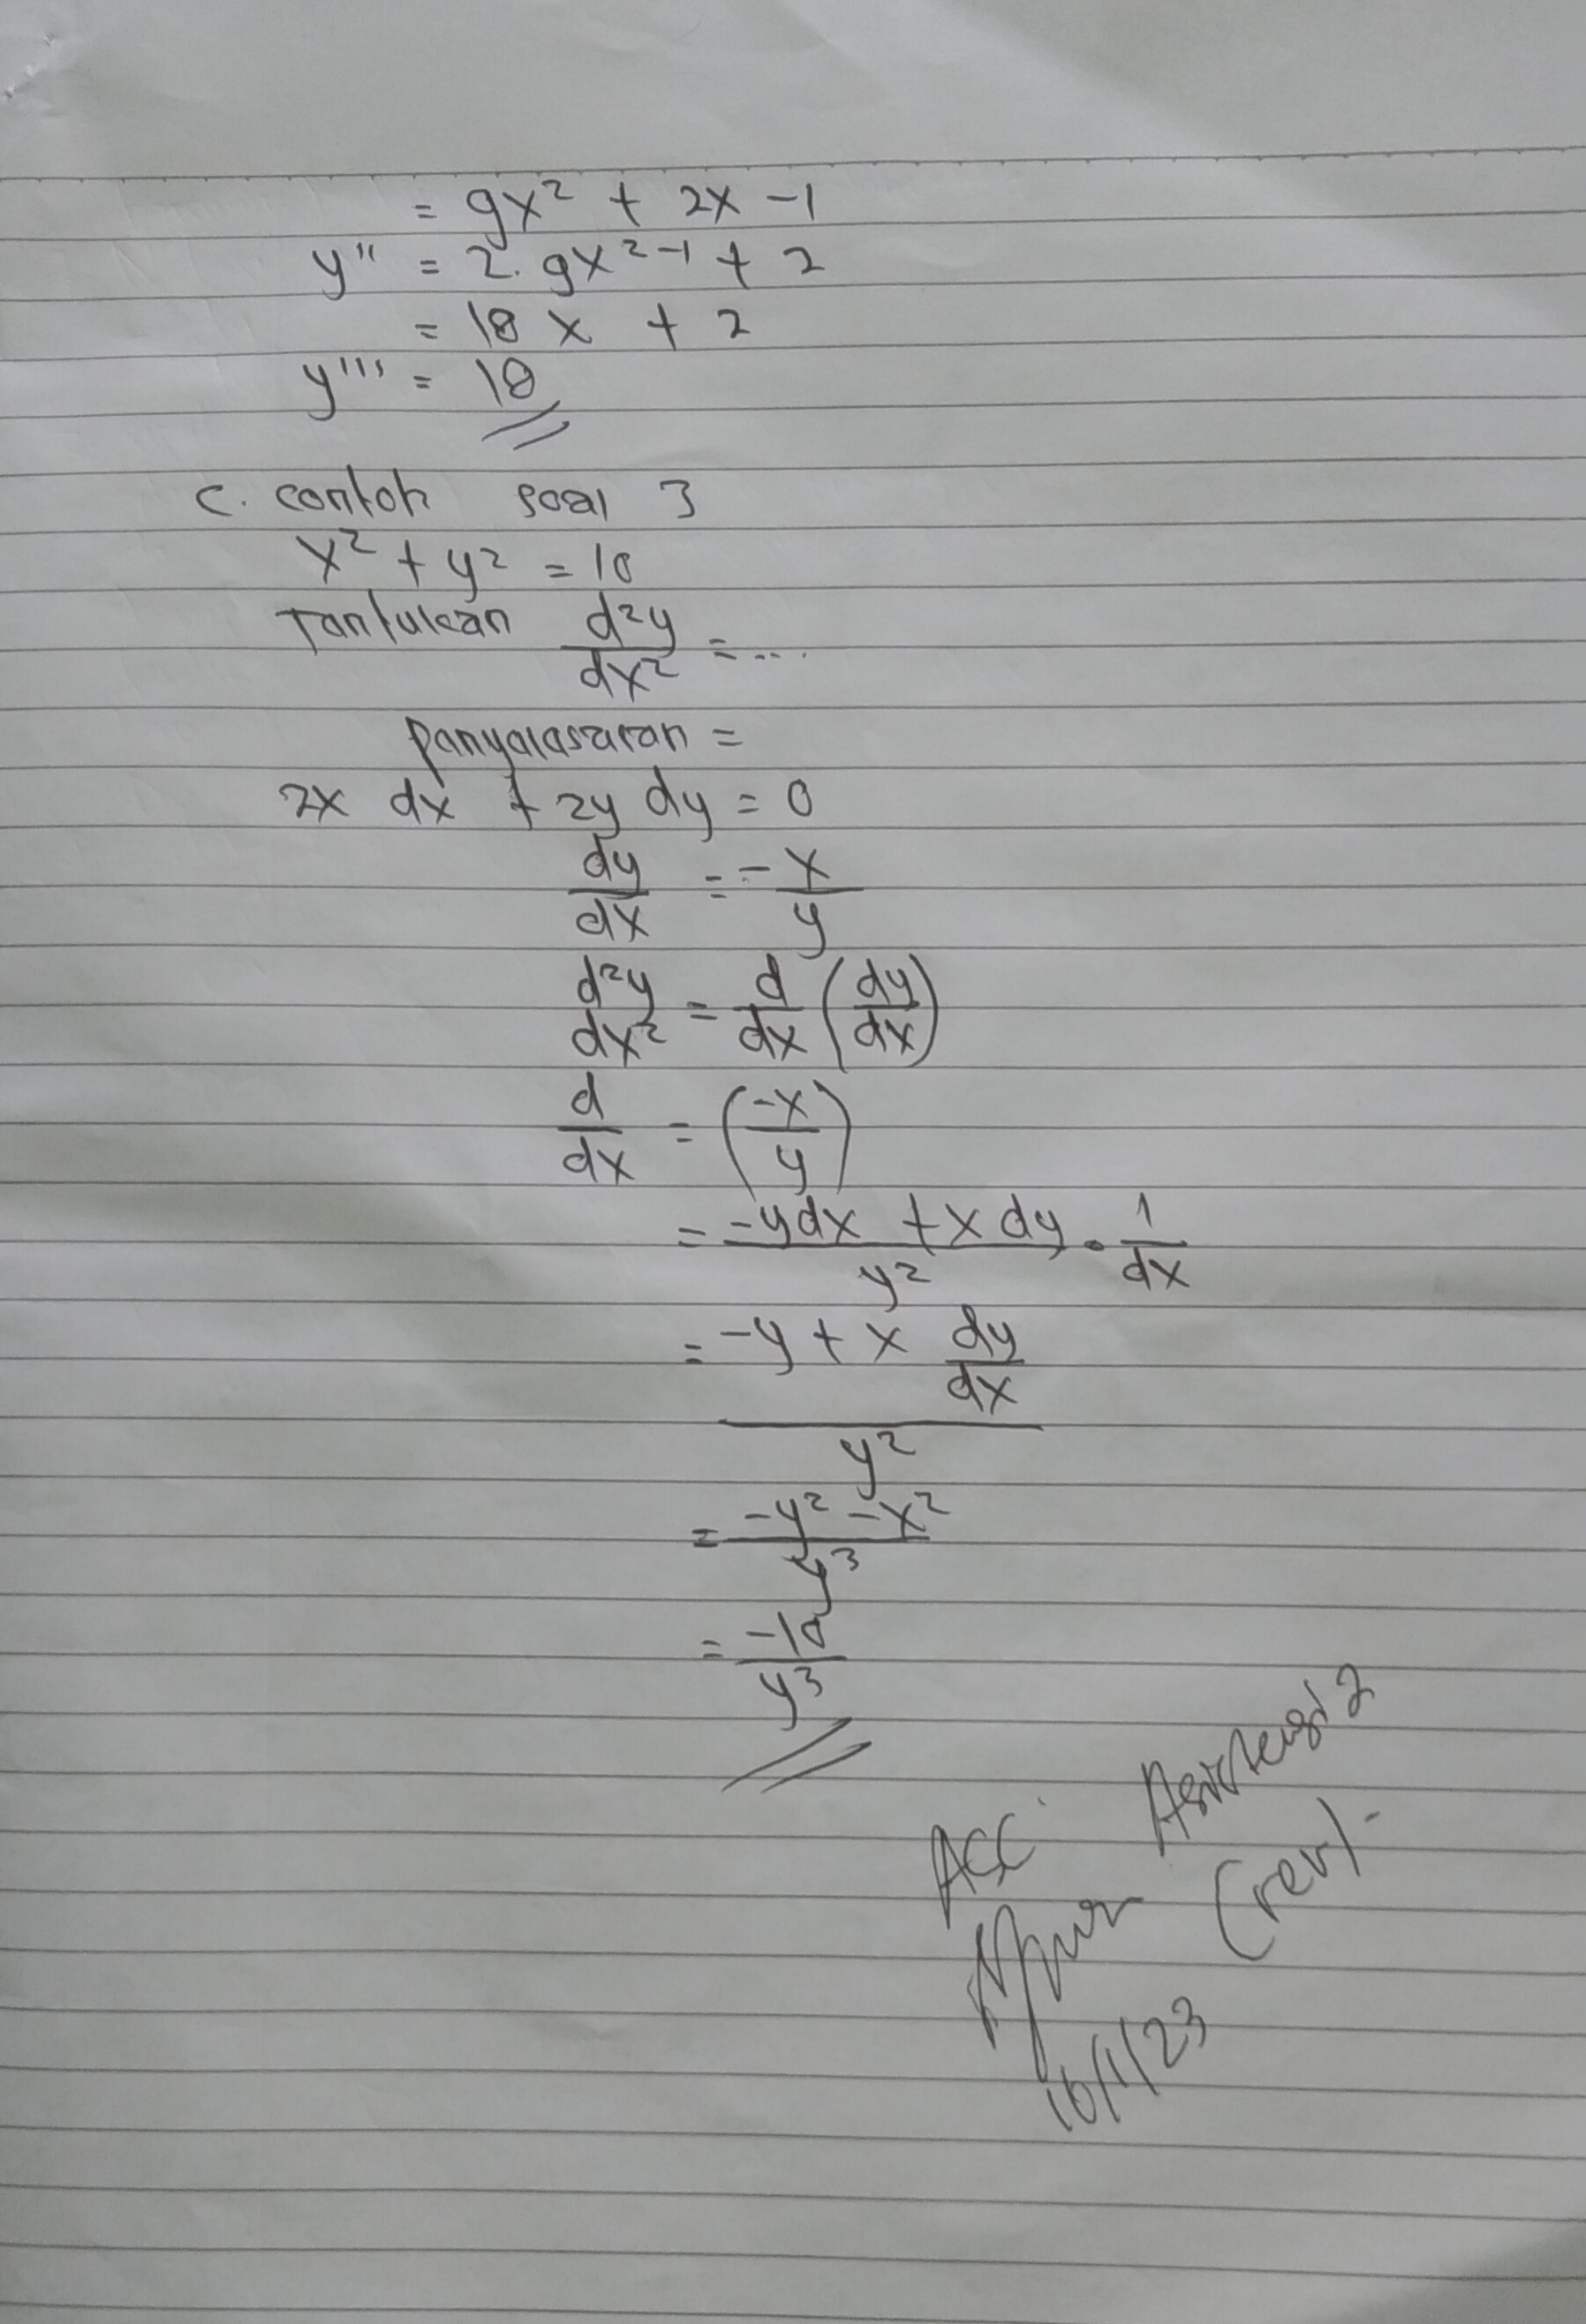 = 9x² + 2x - 1
y'' = 2. 9x²⁻¹ + 2
= 18 x + 2
y''' = 18
C. contoh soal 3
x² + y² = 10
Tantukan d²y/dx² = ...
Panyalasaran =
2x dx + 2y dy = 0
dy/dx = - x/y
d²y/dx² = d/dx (dy/dx)
d/dx = (-x/y)
= (-ydx + x dy)/y² • 1/dx
= (-y + x dy/dx)/y²
= (-y² - x²)/y³
= -10/y³
ACC Asistensi 2
(rev).
16/1/23